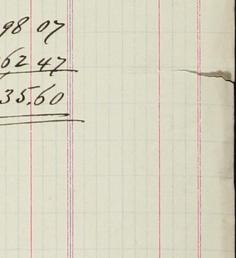 98 07
62 47
35.60